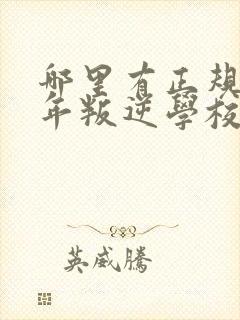 哪里有正規
年叛逆學校
英威騰